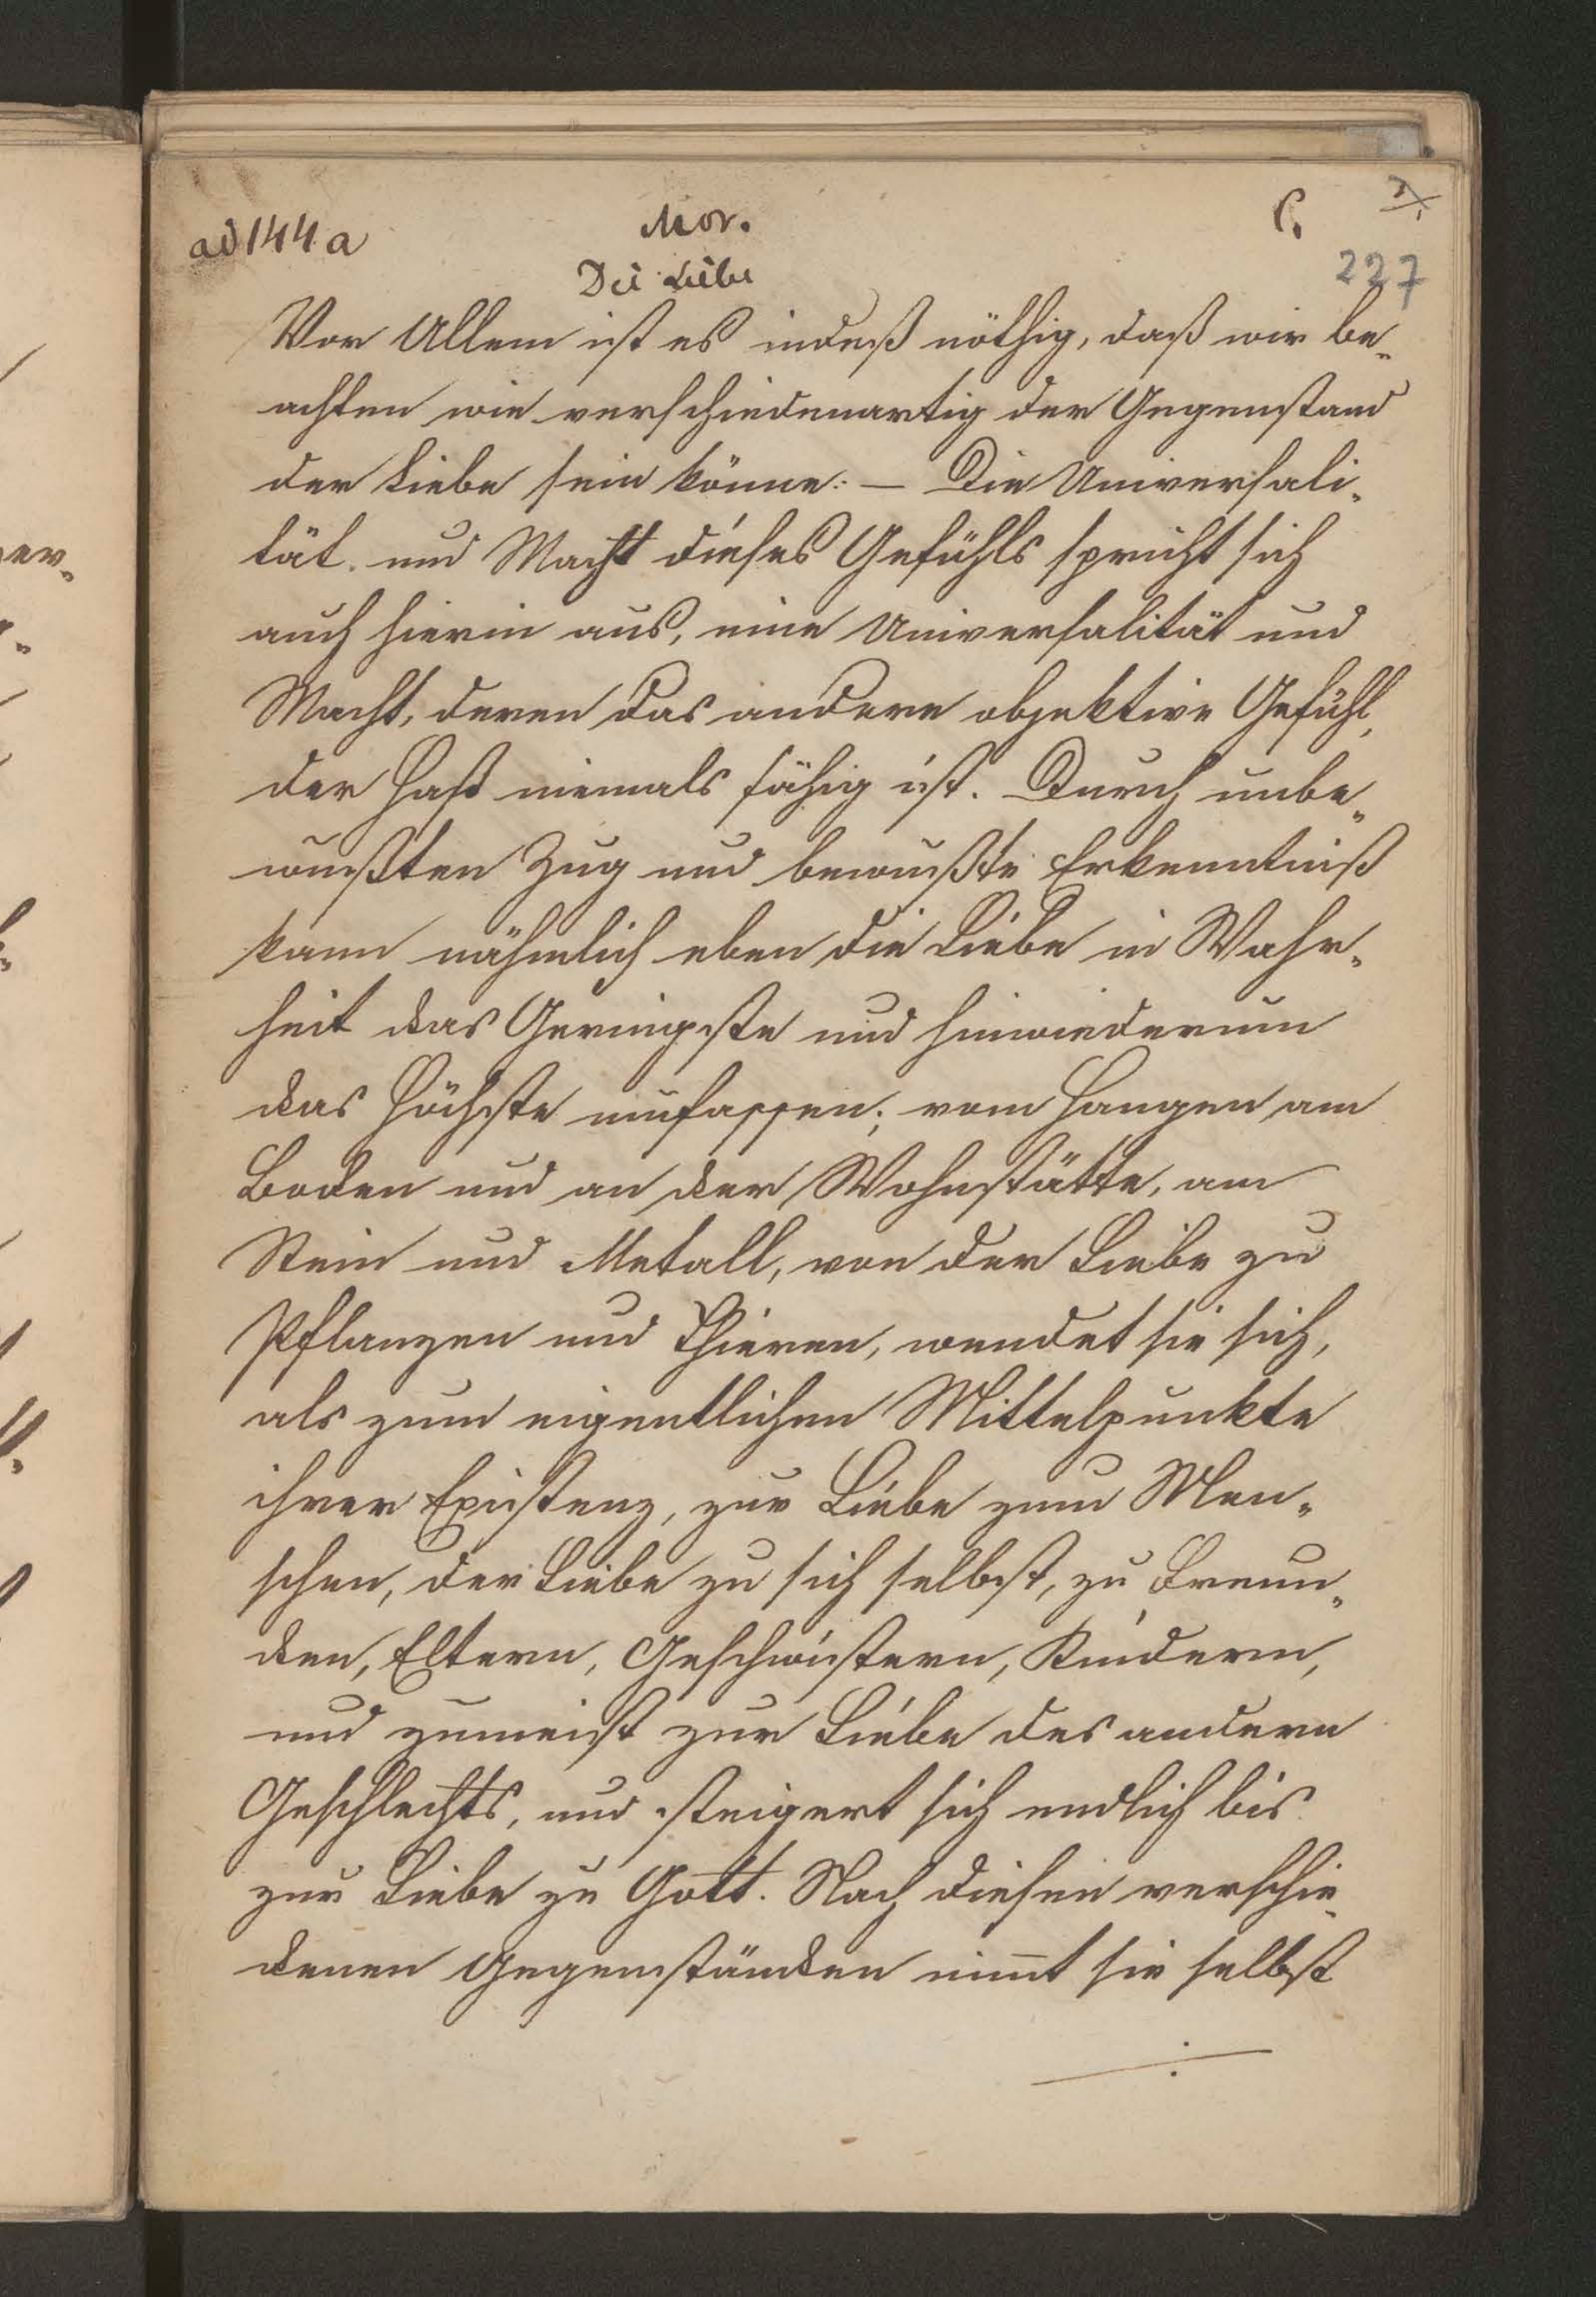 ad 144 a
Mor.
C.
227
Die Liebe
Vor Allem ist es indeß nöthig, daß wir be„
achten wie verschiedenartig der Gegenstand
der Liebe sein könne: — Die Universali„
tät. und Macht dieses Gefühls spricht sich
auch hierin aus, eine Universalität und
Macht, deren das andere objektive Gefühl,
der Haß niemals fähig ist. Durch unbe„
wußten Zug und bewußte Erkenntniß
kann nähmlich eben die Liebe in Wahr„
heit das Geringste und hinwiederum
das Höchste umfassen; vom Hangen am
Boden und an der Wohnstätte, am
Stein und Metall, von der Liebe zu
Pflanzen und Thieren, wendet sie sich,
als zum eigentlichen Mittelpunkte
ihrer Existenz, zur Liebe zum Men„
schen, der Liebe zu sich selbst, zu Freun„
den, Eltern, Geschwistern, Kindern,
und zumeist zur Liebe des andern
Geschlechts, und steigert sich endlich bis
zur Liebe zu Gott. Nach diesen verschie„
denen Gegenständen nim̄t sie selbst